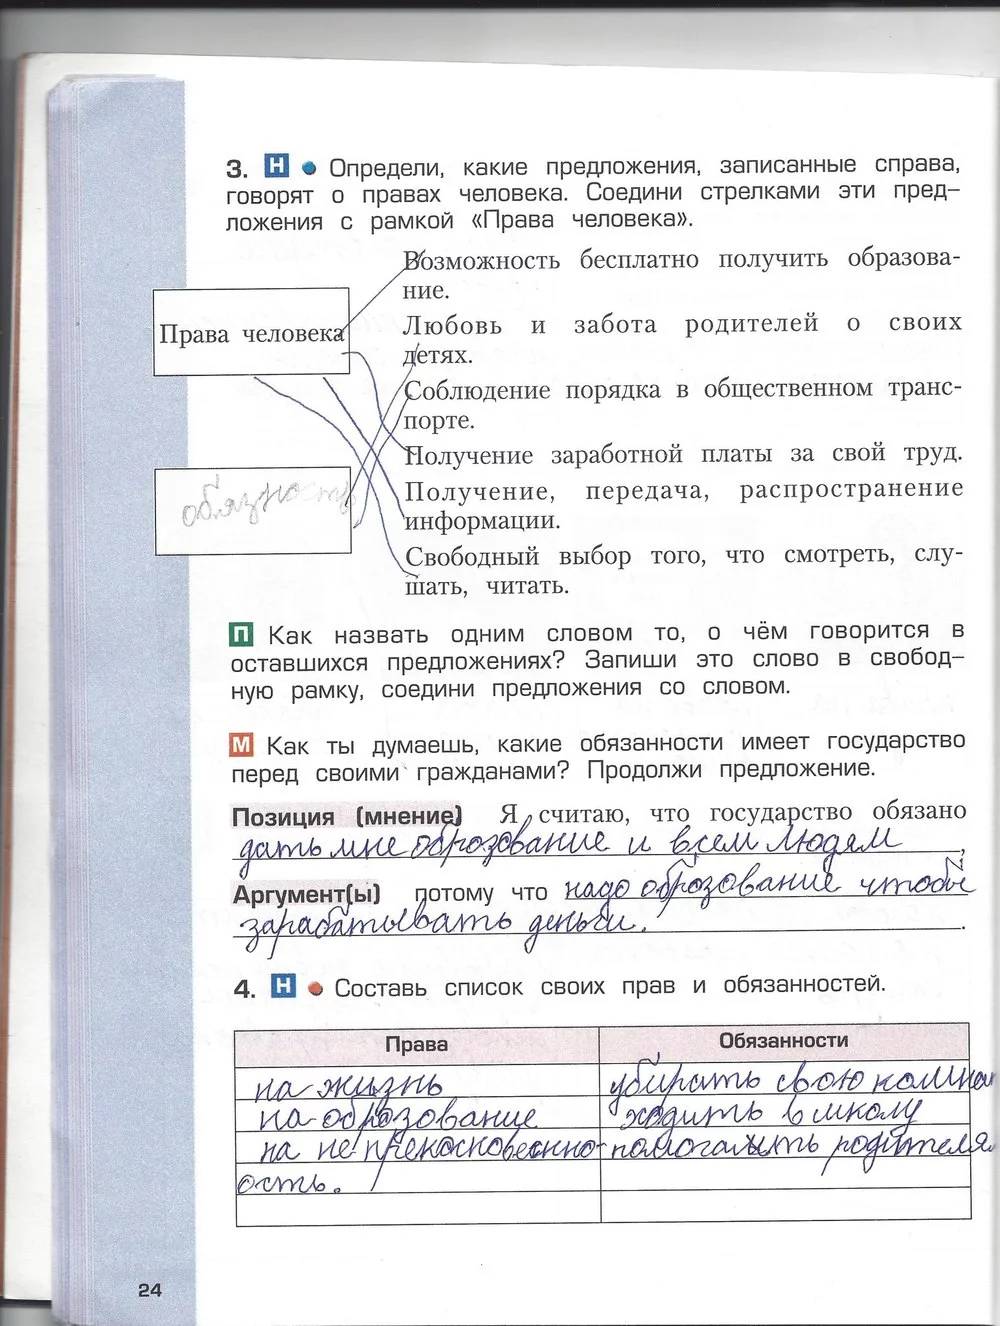 3. Н Определи, какие предложения, записанные справа,
говорят о правах человека. Соедини стрелками эти пред–
ложения с рамкой «Права человека».
Возможность бесплатно получить образова-
ние.
Права человека
Любовь и забота родителей о своих
детях.
Соблюдение порядка в общественном транс-
порте.
Получение заработной платы за свой труд.
обязность
Получение, передача, распространение
информации.
Свободный выбор того, что смотреть, слу-
шать, читать.
П Как назвать одним словом то, о чём говорится в
оставшихся предложениях? Запиши это слово в свобод–
ную рамку, соедини предложения со словом.
М Как ты думаешь, какие обязанности имеет государство
перед своими гражданами? Продолжи предложение.
Позиция (мнение) Я считаю, что государство обязано
дать мне оброзование и всем людям,
Аргумент(ы) потому что надо оброзование чтобы
зарабатывать деньги.
4. Н Составь список своих прав и обязанностей.
Права Обязанности
на жизнь убирать свою комна
на оброзование ходить в школу
на не прекосновенно- помогать родителя
ость.
24